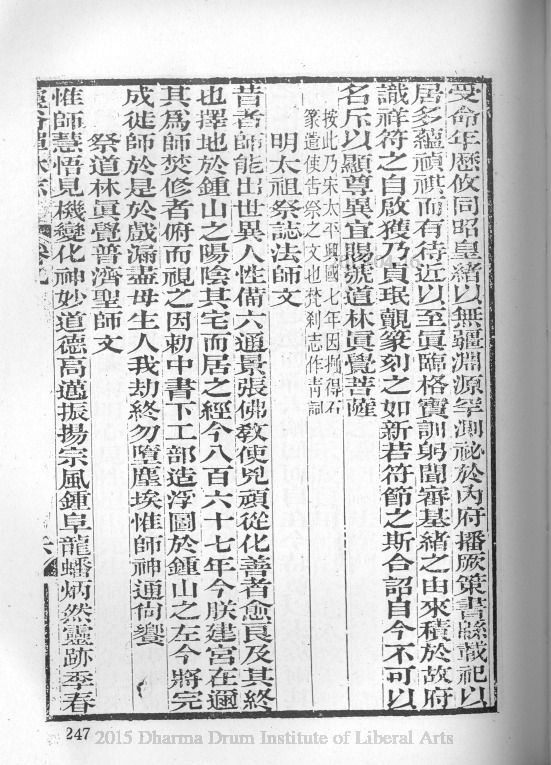 受命年歷攸同昭皇緒以無疆淵源罕測祕於內府播厥策書緜載祀以
居多蘊禎祺而有待近以至眞臨格寶訓躬聞審基緒之由來積於故府
識祥符之自啟獲乃貞珉覿篆刻之如新若符節之斯合詔自今不可以
名斥以顯尊異宜賜號道林眞覺菩薩
按此乃宋太平興國七年因掘得石
篆遣使告祭之文也梵刹志作青詞
明太祖祭誌法師文
昔者師能出世異人性備六通景張佛教使兇頑從化善者愈良及其終
也擇地於鍾山之陽陰其宅而居之經今八百六十七年今朕建宮在邇
其爲師焚修者俯而視之因勅中書下工部造浮圖於鍾山之左今將完
成徙師於是於戲漏盡毋生人我劫終勿墮塵埃惟師神通尙饗
祭道林眞覺普濟聖師文
惟師慧悟見機變化神妙道德高邁振揚宗風鍾阜龍蟠炳然靈跡季春
卷九
六
247 2015 Dharma Drum Institute of Liberal Arts